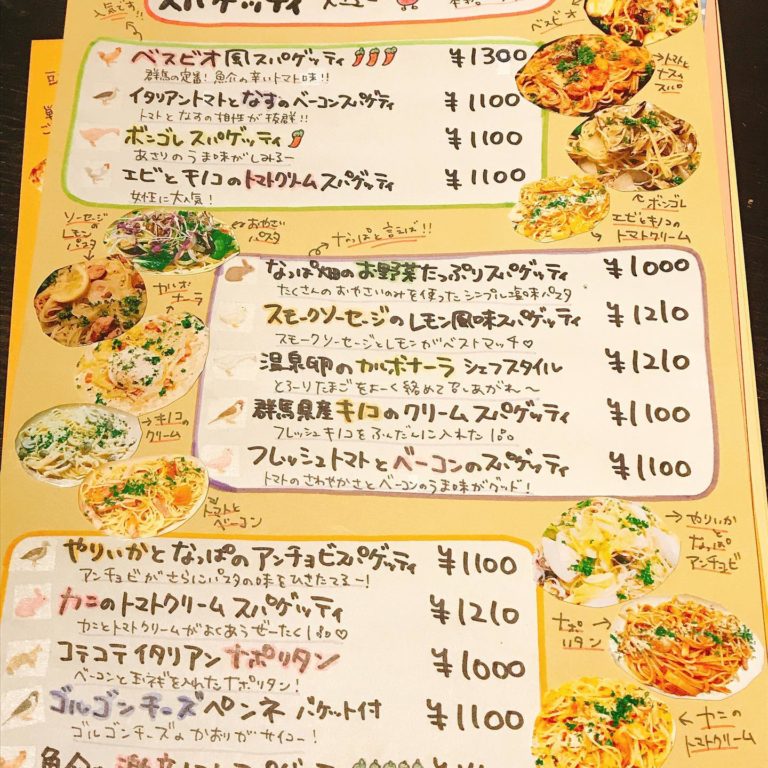 人気です!!
スパゲッティ メニュー
ベスビオ
ベスビオ風スパゲッティ ¥1300
群馬の定番!魚介の辛いトマト味!!
イタリアントマトとなすのベーコンスパゲティ ¥1100
トマトとなすの相性が抜群!!
ボンゴレスパゲッティ ¥1100
あさりのうま味がしみるー
エビとキノコのトマトクリームスパゲッティ ¥1100
女性に大人気!
→トマトとナスのスパ
ボンゴレ
エビとキノコのトマトクリーム
ソーセージのレモンパスタ
おやさいパスタ
カルボナーラ
→キノコのクリーム
トマトとベーコン
なっぱと言えば!!
なっぱ畑のお野菜たっぷりスパゲッティ ¥1000
たくさんのおやさいのみを使ったシンプル塩味パスタ
スモークソーセージのレモン風味スパゲッティ ¥1210
スモークソーセージとレモンがベストマッチ♡
温泉卵のカルボナーラ シェフスタイル ¥1210
とろーりたまごをよーく絡めて召しあがれ〜
群馬県産キノコのクリームスパゲッティ ¥1100
フレッシュキノコをふんだんに入れた1品。
フレッシュトマトとベーコンのスパゲッティ ¥1100
トマトのさわやかさとベーコンのうま味がグッド!
やりいかとなっぱのアンチョビスパゲッティ ¥1100
アンチョビがさらにパスタの味をひきたてるー!
カニのトマトクリームスパゲッティ ¥1210
カニとトマトクリームがよくあうぜーたく1品♡
コテコテイタリアンナポリタン ¥1000
ベーコンと玉ネギを入れたナポリタン!
ゴルゴンチーズペンネ バケット付 ¥1100
ゴルゴンチーズのかおりがサイコー!
→やりいかとなっぱアンチョビ
ナポリタン
←カニのトマトクリーム